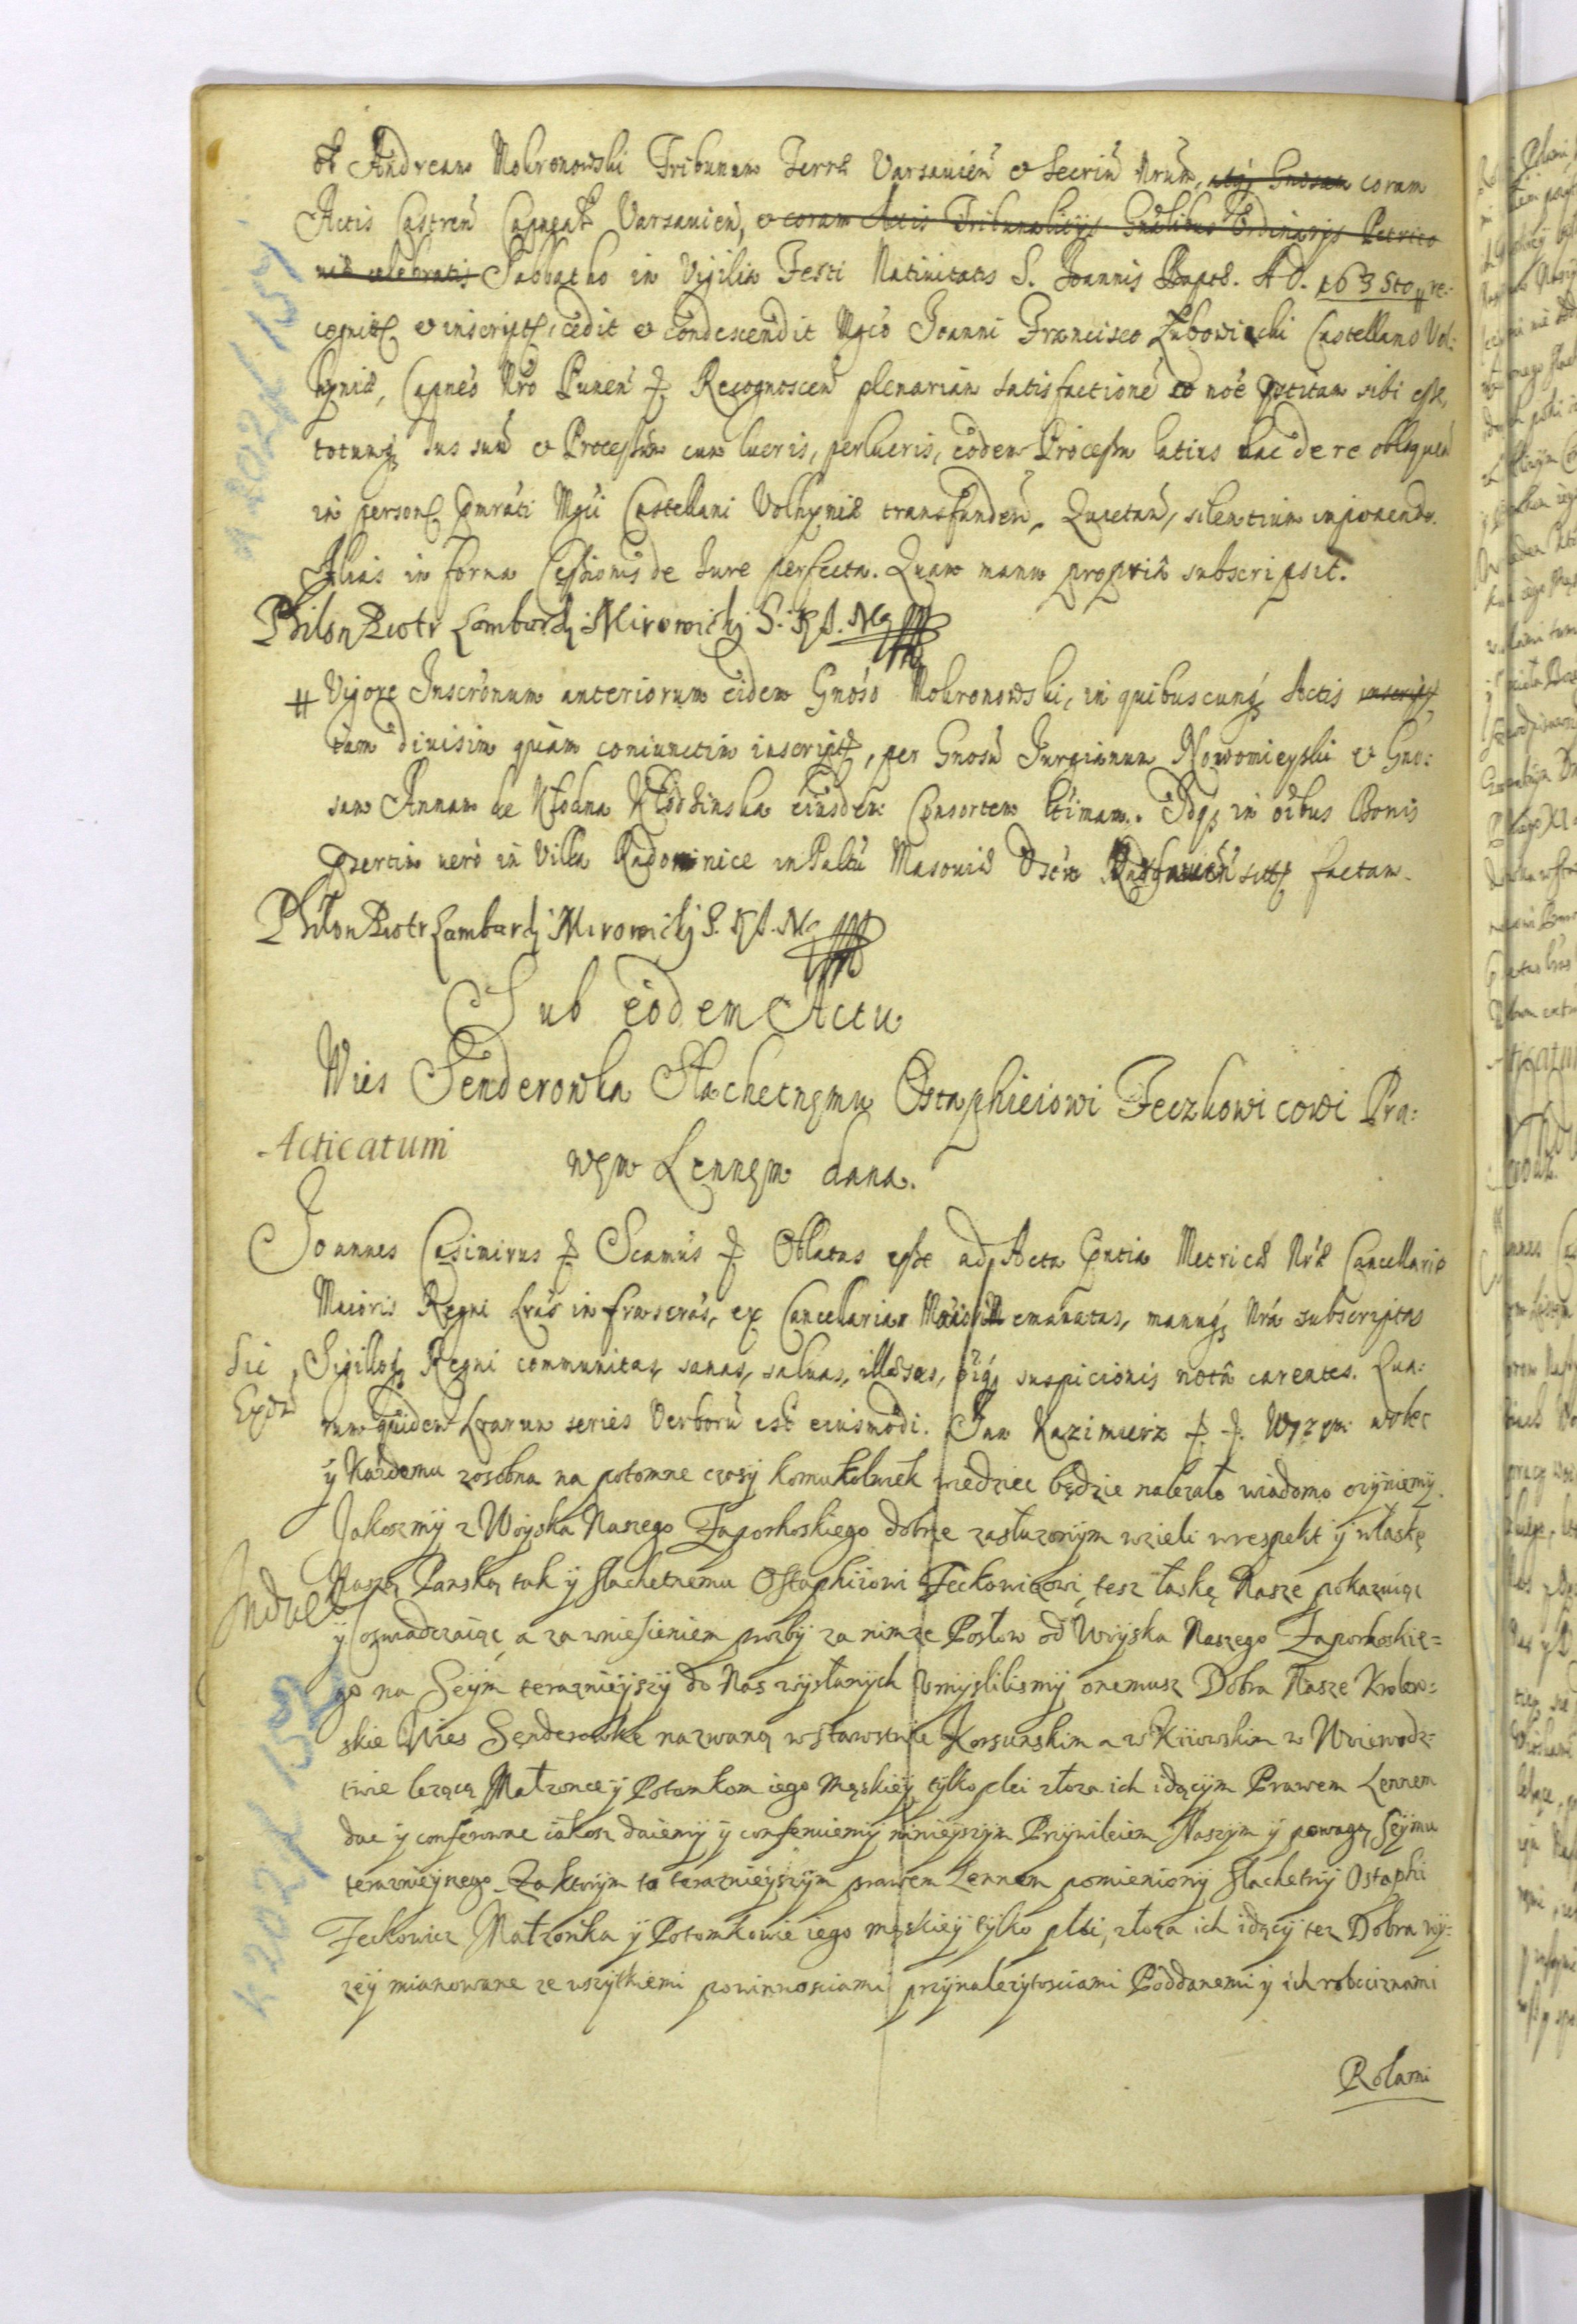 et Andream Mokronowski Tribunum Terrae Varsauien̄ & Secriū Nrūm, coram
Actis Castren̄ Capnealt Varsauien̄, & coram Actis Tribunalitijs Gn̄alibus Ordinarijs Petrico
niae celebratis Sabbatho in Vigilia Festi Natiuitatis S. Joannis Bapt. A D. 163 Sto # re-
cognit & inscript, cedit & condescendit Mgco Joanni Francisco Lubowicki Castellano Vol:
hyniae, Capneo Nro Punen & Recognoscen plenariam satisfactione eo noe pstitam sibi esse,
totumq Jus suū & Processum cum lucris, perlucris, eodem Processu latius hac de re obloquen
in person pmrati Mgci Castellani Volhyniae transfunden, Quietan, silentium imponendo.
Alias in forma Cessionis de Jure perfecta. Quam manu propria subscripsit.
Philon Piotr Lombardy Mirowicky S. K J. M
# Vigore Inscrōnum anteriorum eidem Gnoso Mokronowski, in quibuscunq Actis inscript
tam diuisim quam coniunctim inscript, per Gnosū Jurgianum Nowomieyski & Gno:
sam Annam de Kłodna Kłodzinska eiusdem Consortem ltimam. Idq in oibus Bonis
psertim uero in Villa Radominice in Paltu Masouiae Dsctu sitis factam.
Philon Piotr Lambardy Mirowicky S. K J. M
Sub eodem Actu
Wies Senderowka Slachetnemu Ostaphieiowi Feczkowicowi Pra:
Acticatum
wem Lennem dana.
Joannes Casimirus & Scamus & Oblatas esse ad Acta pntia Metricae Nrae Cancellariae
Maioris Regni Lras infrascras, ex Cancelaria Maiori emanatas, manuq Nra subscriptas
Sic, Sigilloq Regni communitas, sanas, saluas, illaesas, oiq suspicionis nota carentes. Qua:
Expd
rum quidem Lrarum series Verborū est eiusmodi. Jan Kazimierz & & Wszem wobec
y Kazdemu zosobna na potomne czasy komukolwiek wiedziec będzie nalezało wiadomo czyniemy.
Jakoszmy z Woyska Naszego Zaporhoskiego dobrze zasłuzonym wzieli w respekt y właskę
Naszą Panską tak y slachetnemu Ostaphiiowi Feckowicowi, tesz łaskę Nasze pokazuiąc
Induct
y oswiadczaiąc a za wniesieniem prozby za nimze Posłow od Woyska Naszego Zaporhoskie=
go na Seym teraznieyszy do Nas wysłanych umyslilismy onemusz Dobra Nasze Krolew=
skie Wies Senderowke nazwaną w Starostwie Korsunskim a w Kiiowskim w Woiewodz=
twie lezącą Małzonce y Potomkom iego męskiey tylko płci złoza ich idącym Prawem Lennem
dac y conferowac iakosz daiemy y conferuiemy ninieyszym Przywileiem Naszym y powagą Seymu
teraznieyszego. Za ktorym to teraznieyszym prawem Lennem pomieniony slachetny Ostaphi
Feckowicz Małzonka y Potomkowie iego męskiey tylko płci, złoza ich idący tez Dobra wy=
zey mianowane ze wszytkiemi powinnosciami przynalezytosciami Poddanemi y ich robociznami
Rolami